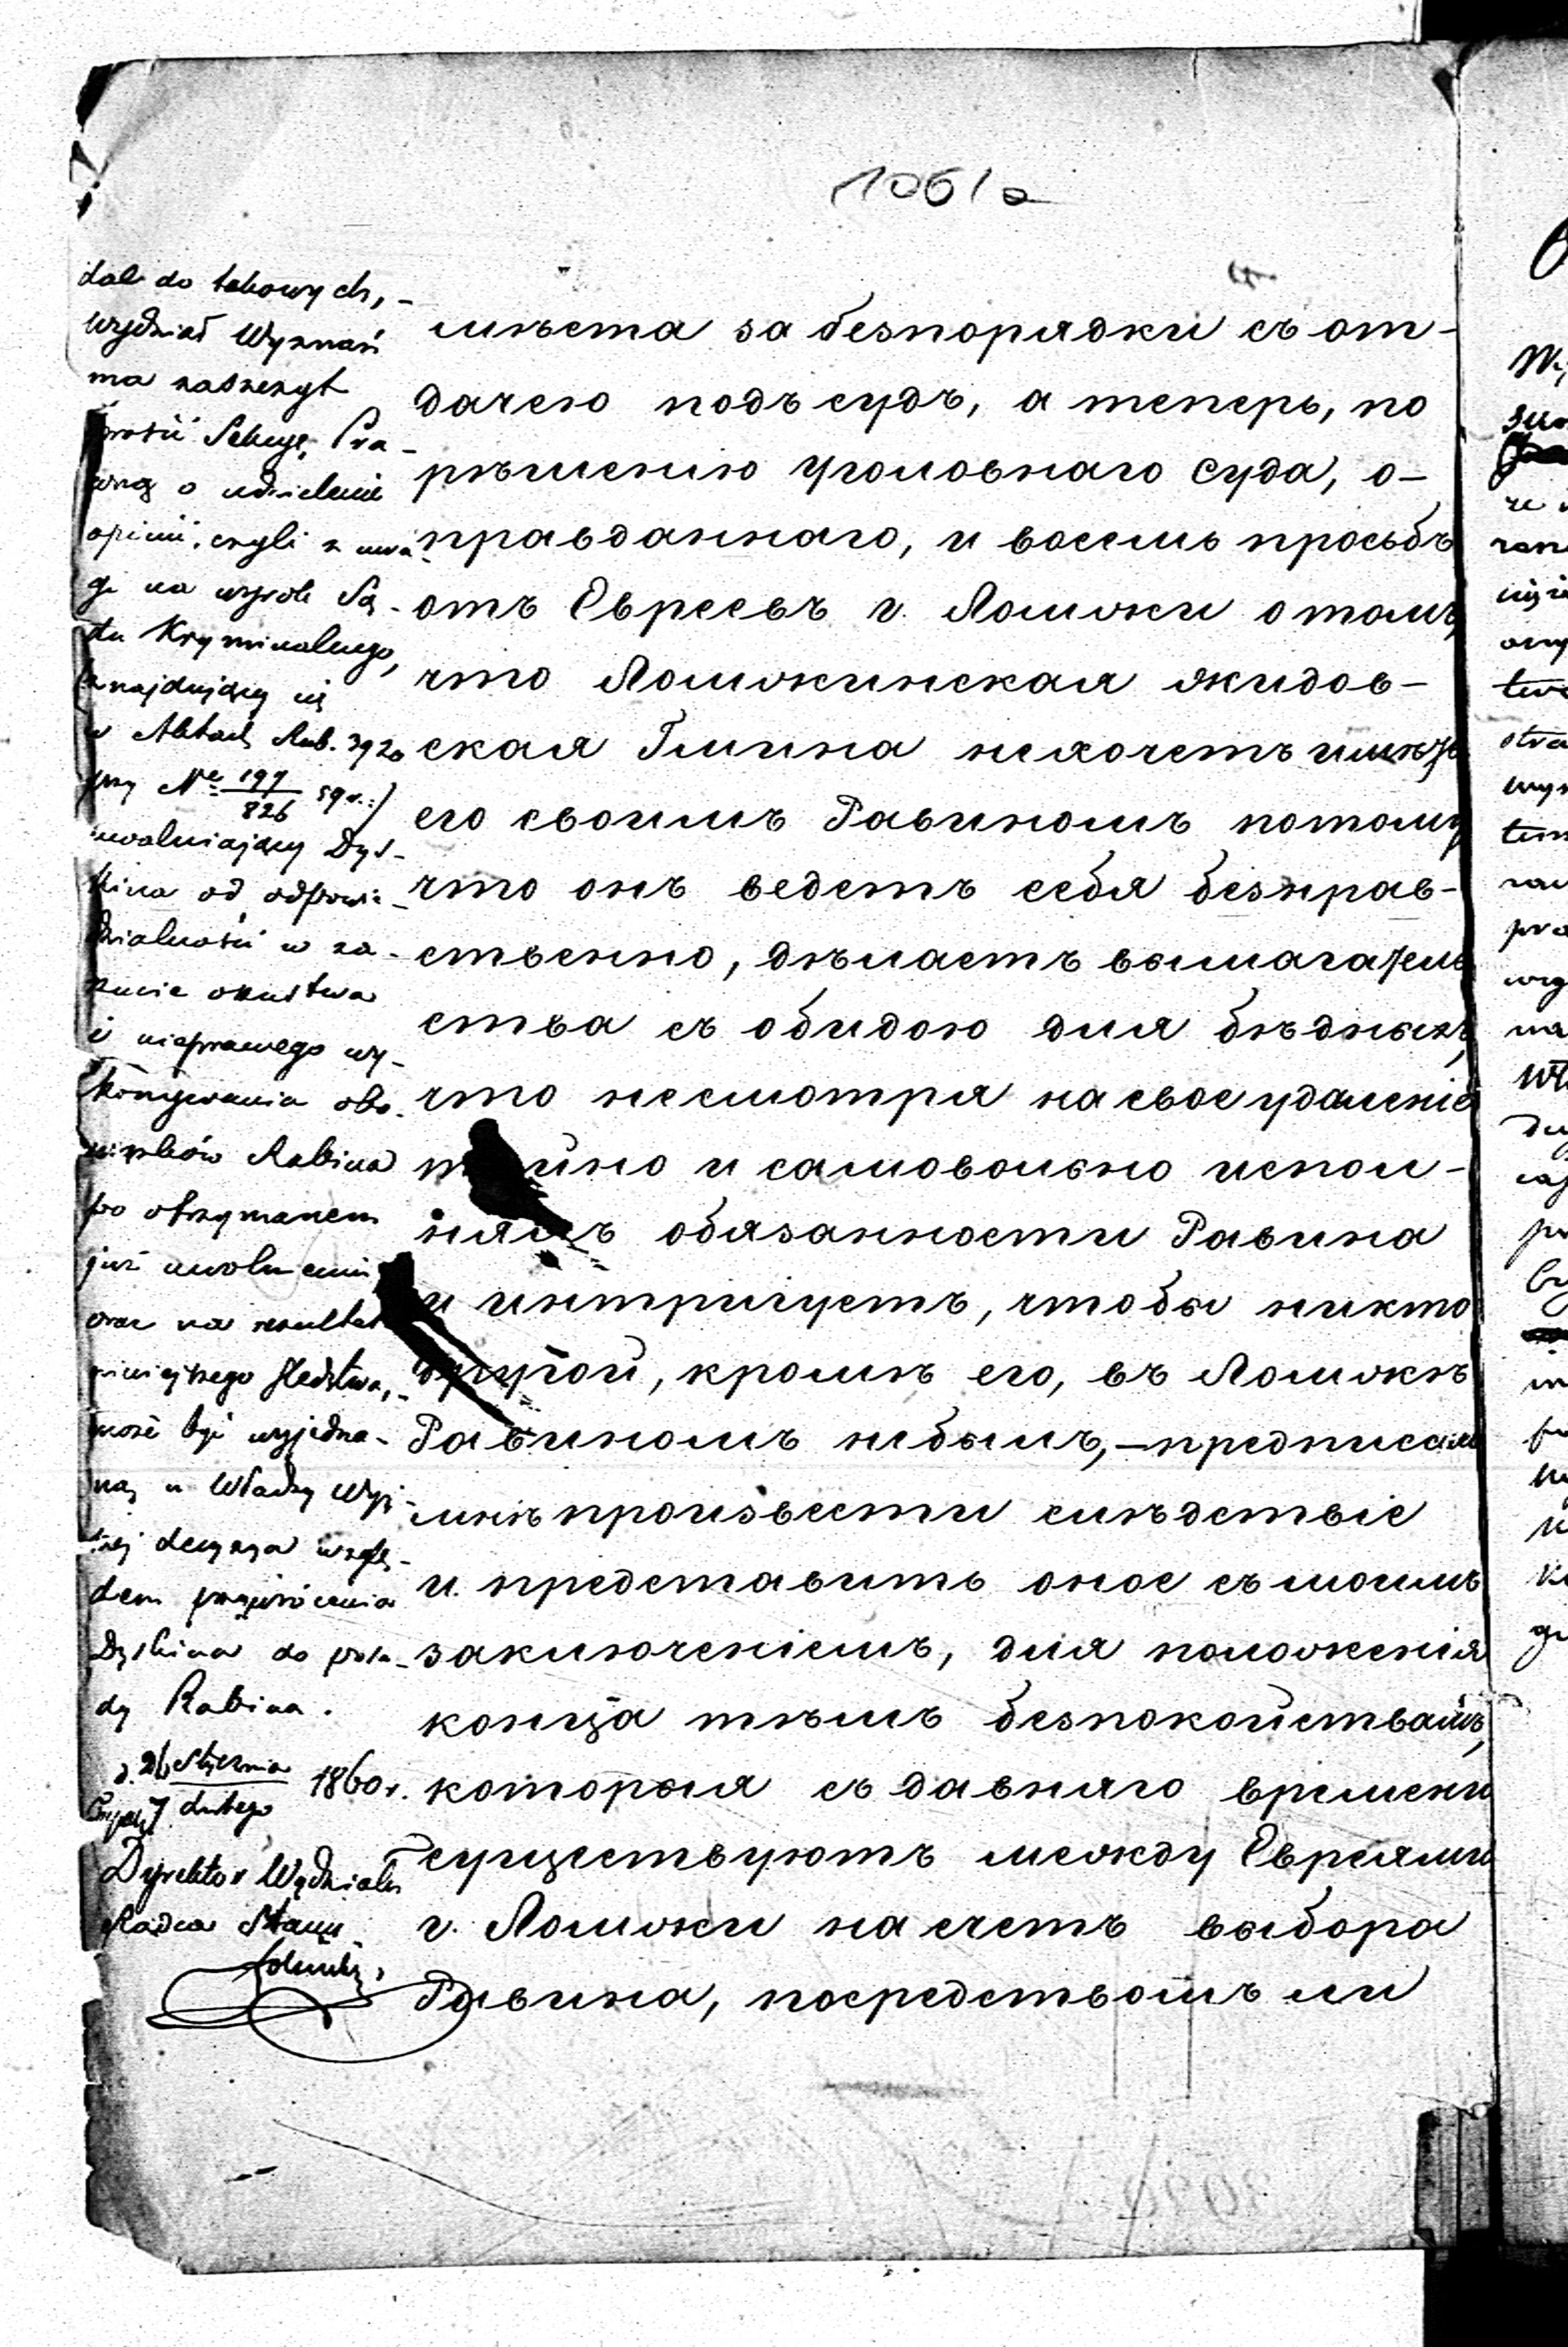 1061a
dal do takowych, -
Wydział Wyznań
ma zaszczyt
prosić Sekcyę Pra-
wną o udzielenie
opinii, czyli z uwa-
gi na wyrok Są-
du Kryminalnego,
(znajdujący się
w Aktach Rab. 3920
przy Nr 197/826 59 r.:)
uwalniający Dys-
kina od odpowie-
dzialności w za-
rzucie oszustwa
i nieprawego wy-
konywania obo-
wiązków Rabina
po otrzymanem
już uwolnieniu
oraz na rezultat
niniejszego śledztwa, -
może być wyjedna-
ną u Władzy Wyż-
szej decyzya wzglę-
dem przywrócenia
Dyskina do posa-
dy Rabina.
d. 26 Stycznia / 7 Lutego 1860 r.
Dyrektor Wydziału
Radca Stanu
мѣста за безпорядки съ от-
дачею подъ судъ, а теперь, по
рѣшенію Уголовнаго Суда, о-
правданнаго, и восемь просьбъ
отъ Евреевъ г. Ломжи о томъ,
что Ломжинская жидов-
ская Гмина нехочетъ имѣть
его своимъ Равиномъ потому
что онъ ведетъ себя безнрав-
ственно, дѣлаетъ вымагатель
ства съ обидою для бѣдныхъ,
что несмотря на свое удаленіе
тайно и самовольно испол-
нялъ обязанности Равина
и интригуетъ, чтобы никто
другой, кромѣ его, въ Ломжѣ
Равиномъ небылъ, - предписали
мнѣ произвести слѣдствіе
и представить оное съ моимъ
заключеніемъ, для положенія
конца тѣмъ безпокойствамъ,
которыя съ давняго времени
существуютъ между Евреями
г. Ломжи на счетъ выбора
Равина, посредствомъ ли